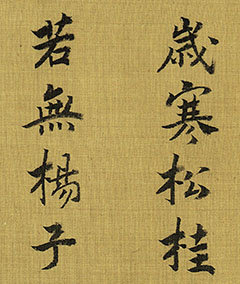 歲寒松桂
若無楊子